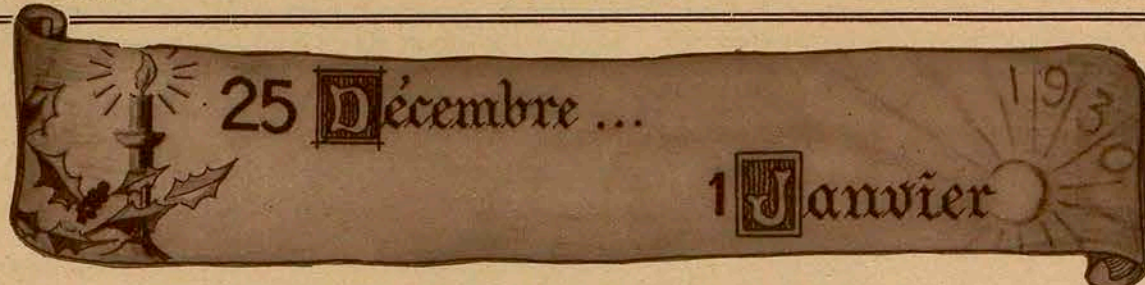 25 Décembre ...
1 Janvier
1930